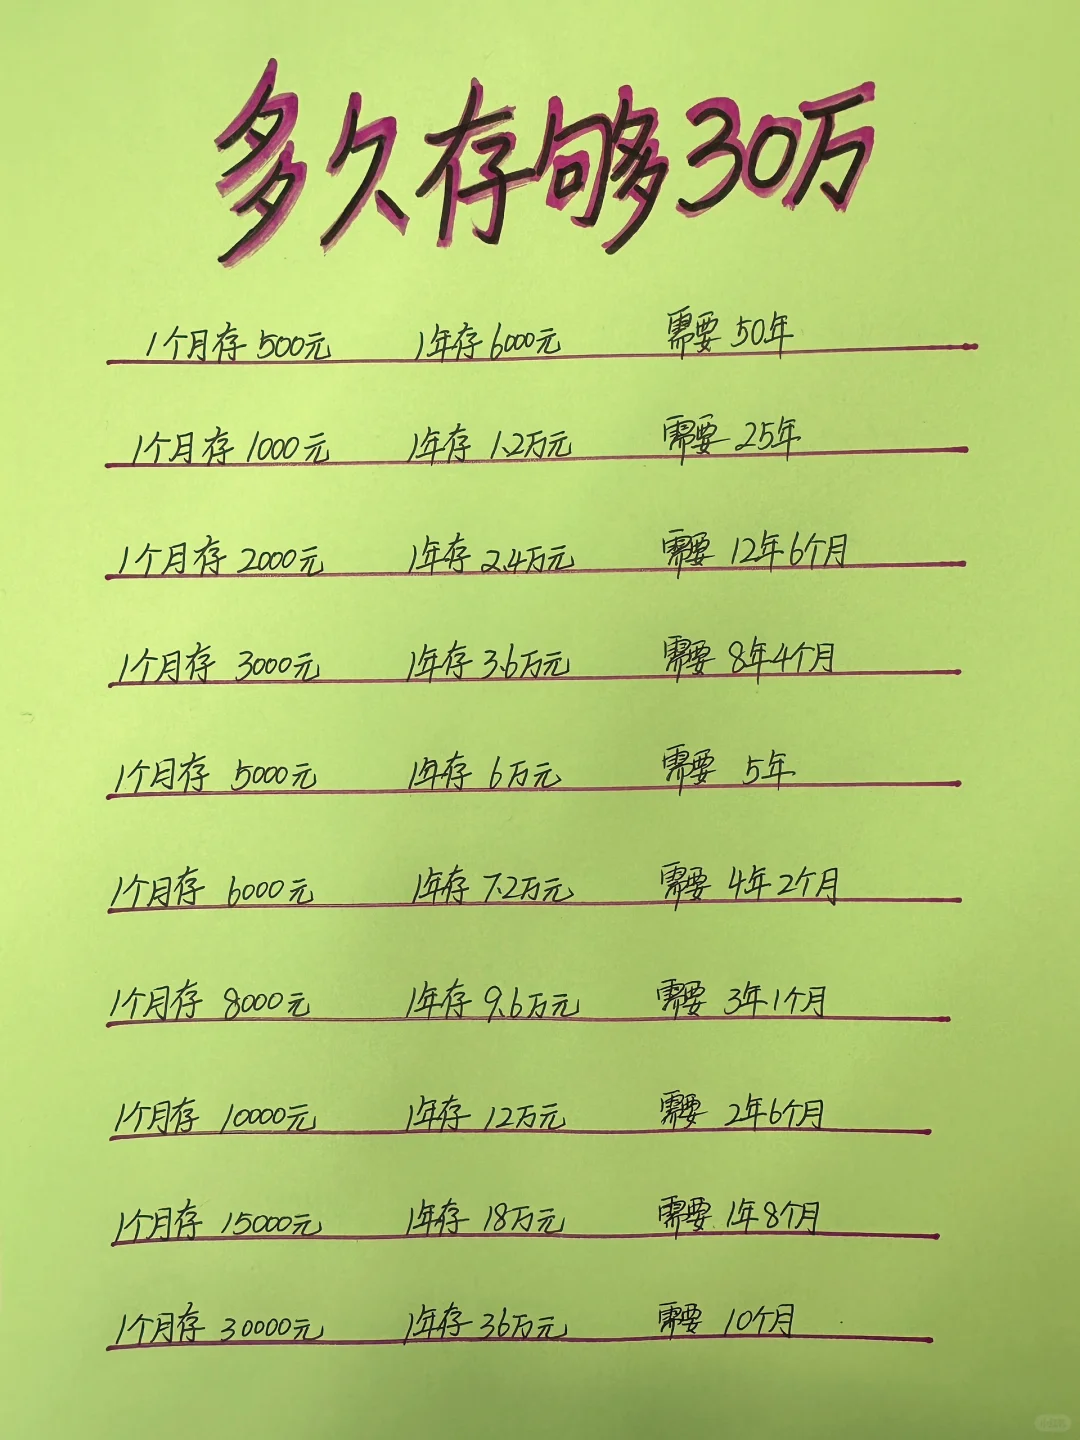 多久存够30万
1个月存 500元 1年存 6000元 需要 50年
1个月存 1000元 1年存 1.2万元 需要 25年
1个月存 2000元 1年存 2.4万元 需要 12年6个月
1个月存 3000元 1年存 3.6万元 需要 8年4个月
1个月存 5000元 1年存 6万元 需要 5年
1个月存 6000元 1年存 7.2万元 需要 4年2个月
1个月存 8000元 1年存 9.6万元 需要 3年1个月
1个月存 10000元 1年存 12万元 需要 2年6个月
1个月存 15000元 1年存 18万元 需要 1年8个月
1个月存 30000元 1年存 36万元 需要 10个月